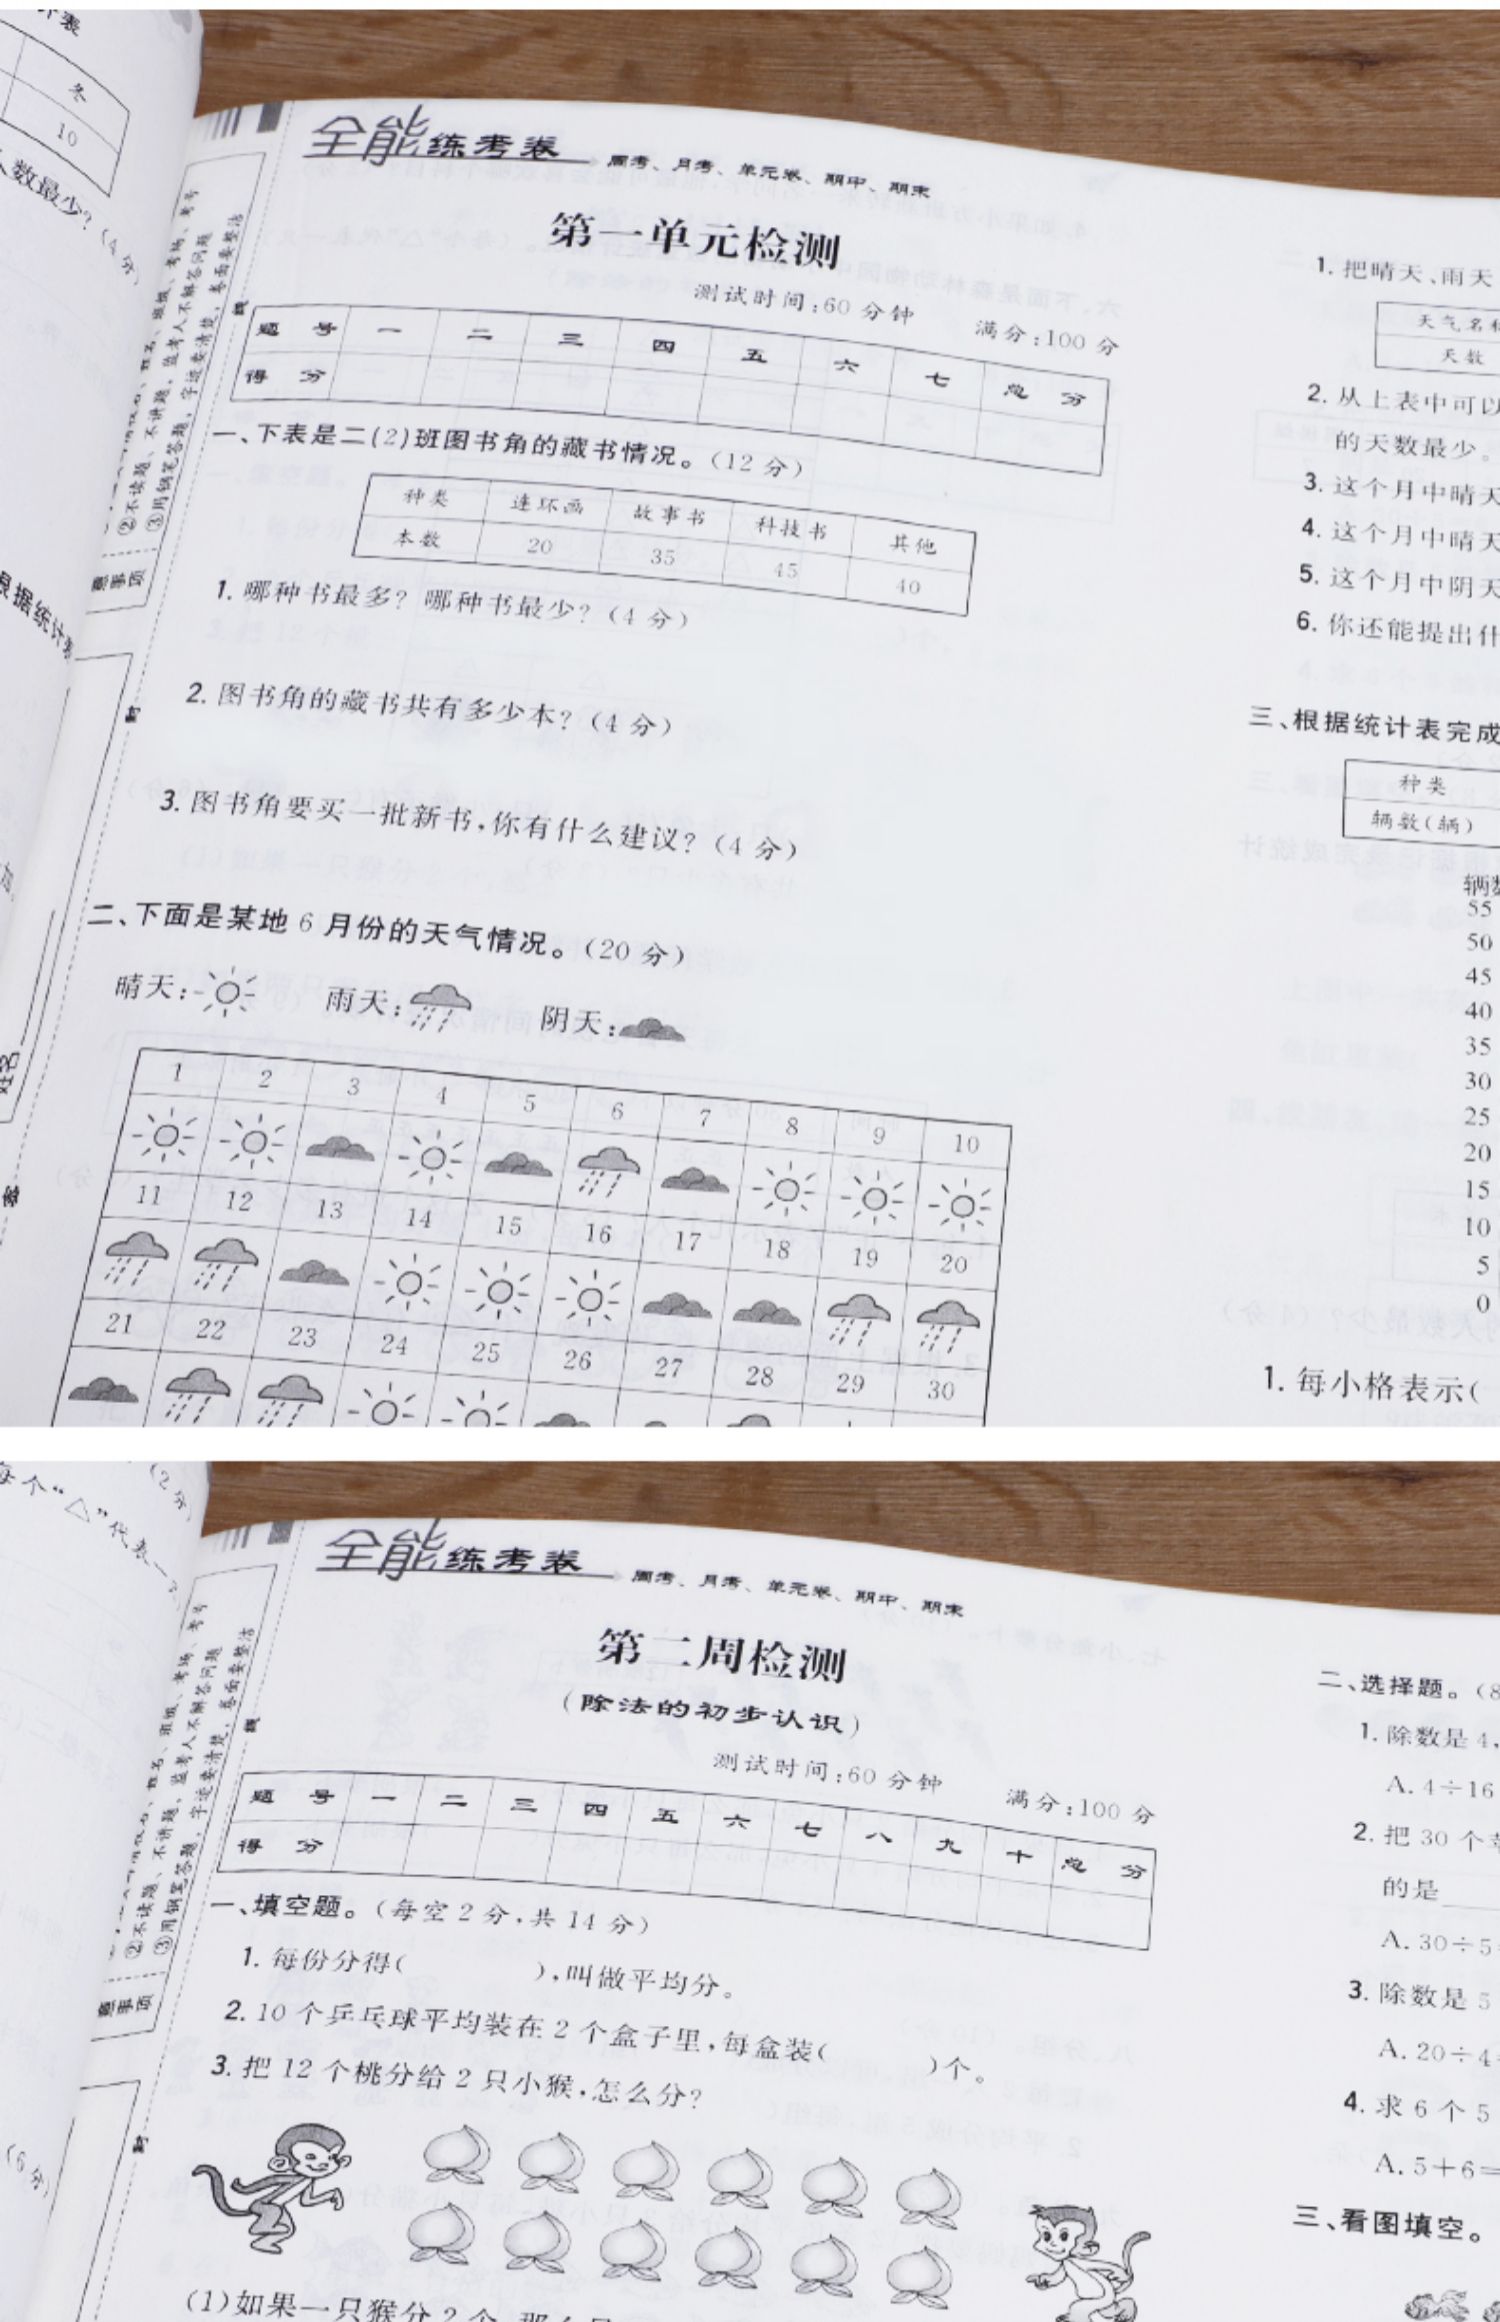 计表
冬
10
人数最少？（4分）
根据统计表
姓名
②不读题、不讲题，监考人不解答问题
③用钢笔答题，字迹要清楚，卷面要整洁
线
封
密
全能练考卷 周考、月考、单元卷、期中、期末
第一单元检测
测试时间：60分钟 满分：100分
题号 一 二 三 四 五 六 七 总分
得分
一、下表是二(2)班图书角的藏书情况。（12分）
种类 连环画 故事书 科技书 其他
本数 20 35 45 40
1. 哪种书最多？哪种书最少？（4分）
2. 图书角的藏书共有多少本？（4分）
3. 图书角要买一批新书，你有什么建议？（4分）
二、下面是某地6月份的天气情况。（20分）
晴天： 雨天： 阴天：
1 2 3 4 5 6 7 8 9 10
11 12 13 14 15 16 17 18 19 20
21 22 23 24 25 26 27 28 29 30
1. 把晴天、雨天
天气名称
天数
2. 从上表中可以
的天数最少。
3. 这个月中晴天
4. 这个月中晴天
5. 这个月中阴天
6. 你还能提出什
三、根据统计表完成
种类
辆数（辆）
辆数
55
50
45
40
35
30
25
20
15
10
5
0
1. 每小格表示(
（2分）
每个“△”代表一
②不读题、不讲题，监考人不解答问题
③用钢笔答题，字迹要清楚，卷面要整洁
线
封
（6分）
全能练考卷 周考、月考、单元卷、期中、期末
第二周检测
（除法的初步认识）
测试时间：60分钟 满分：100分
题号 一 二 三 四 五 六 七 八 九 十 总分
得分
一、填空题。（每空2分，共14分）
1. 每份分得( )，叫做平均分。
2. 10个乒乓球平均装在2个盒子里，每盒装( )个。
3. 把12个桃分给2只小猴，怎么分？
(1)如果一只猴分2个，那么另
二、选择题。（8
1. 除数是4，
A. 4÷16
2. 把30个苹
的是
A. 30÷5
3. 除数是5
A. 20÷4
4. 求6个5
A. 5+6=
三、看图填空。